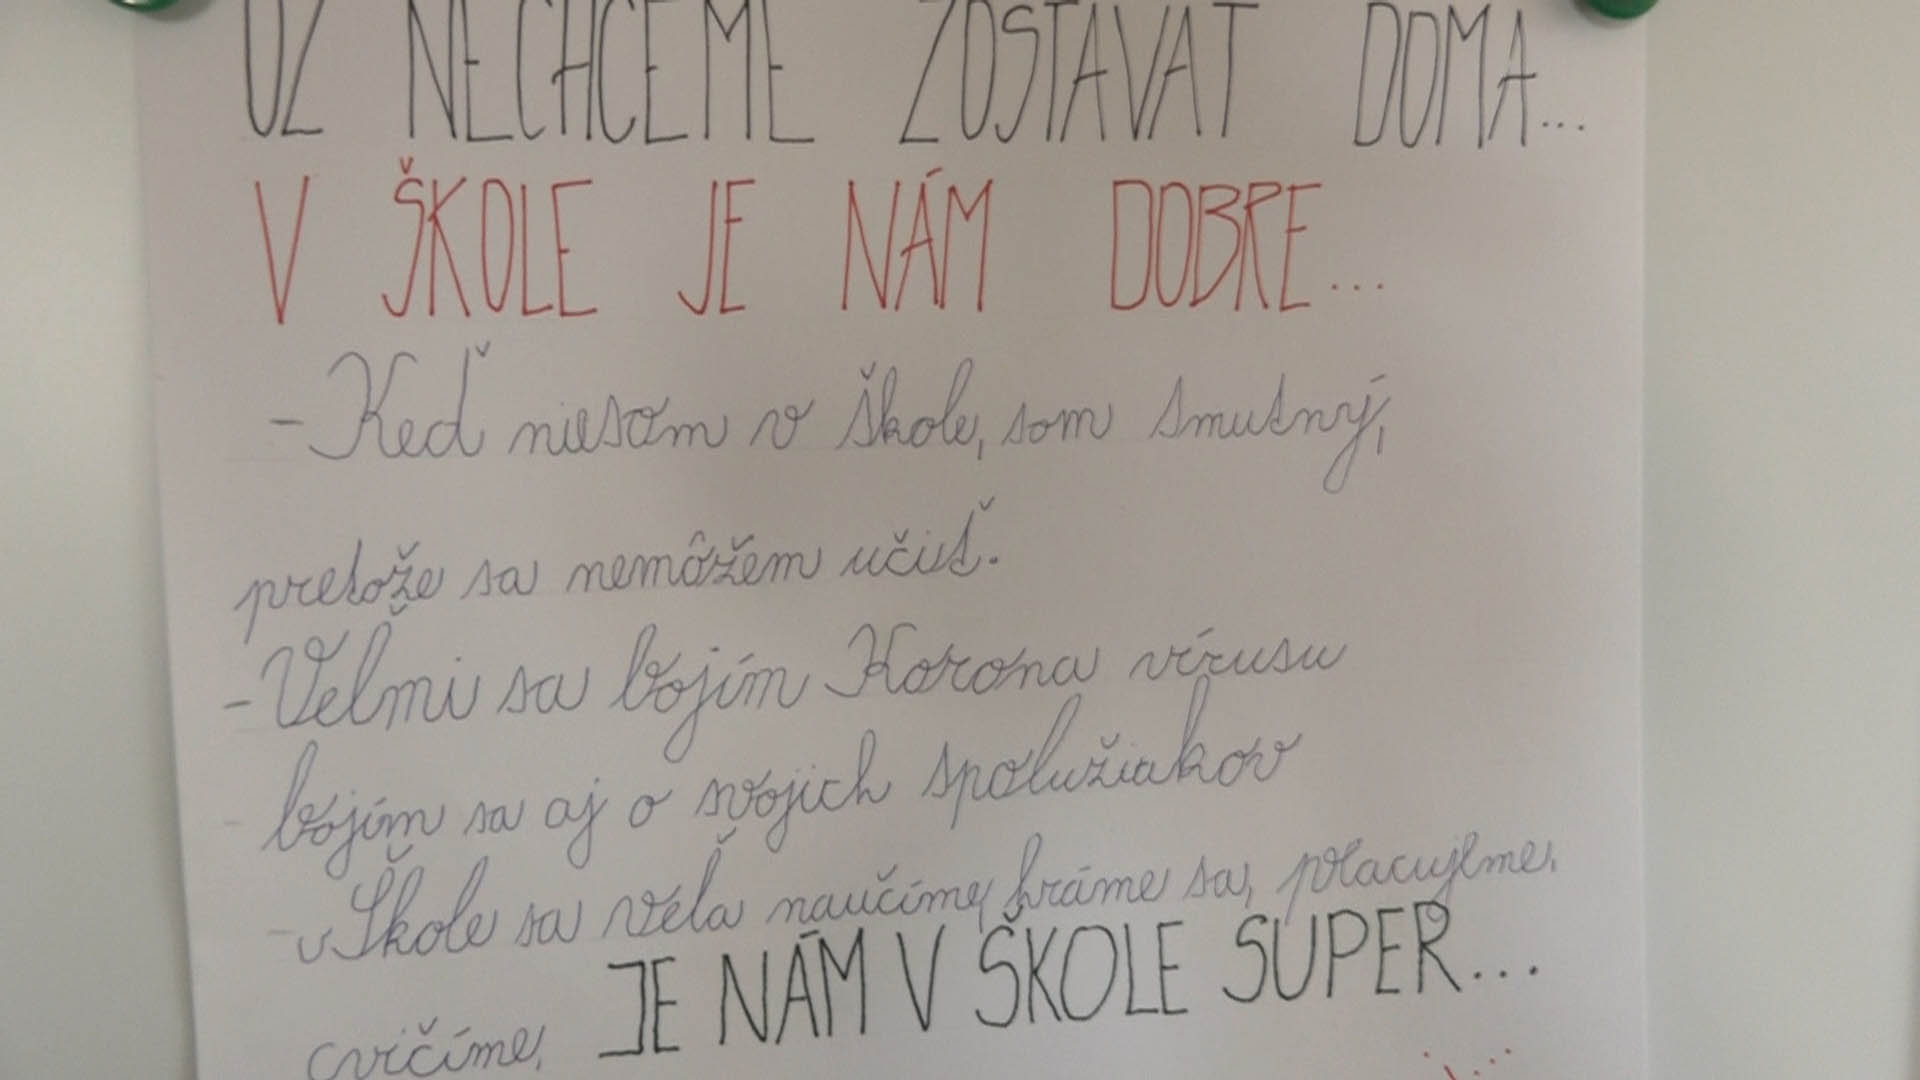 UŽ NECHCEME ZOSTÁVAŤ DOMA...
V ŠKOLE JE NÁM DOBRE...
- Keď niesom v škole, som smutný,
pretože sa nemôžem učiť.
- Veľmi sa bojím Korona vírusu
- bojím sa aj o svojich spolužiakov
- v Škole sa veľa naučíme, hráme sa, pracujeme,
cvičíme, JE NÁM V ŠKOLE SUPER...